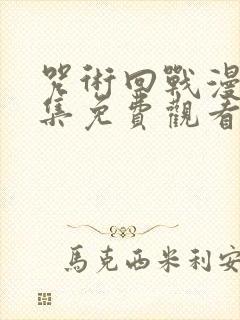 咒術回戰漫
集免費觀看
馬克西米利安